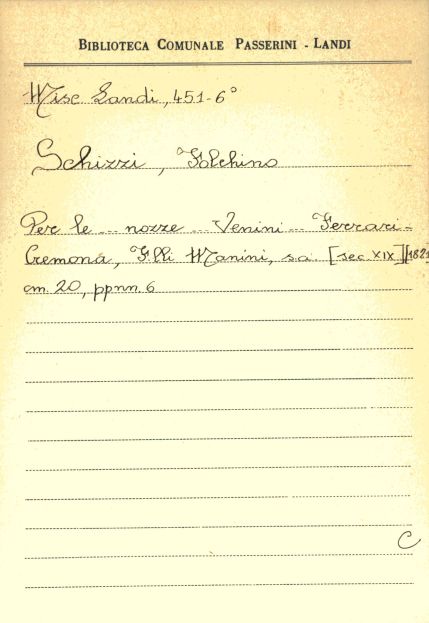 BIBLIOTECA COMUNALE PASSERINI - LANDI
Misc Landi, 451-6°
Schizzi, Folchino
Per le ... nozze ... Venini ... Ferrari -
Cremona, F.lli Manini, s.a. [sec. XIX] [182
cm. 20, pp.nn. 6
C